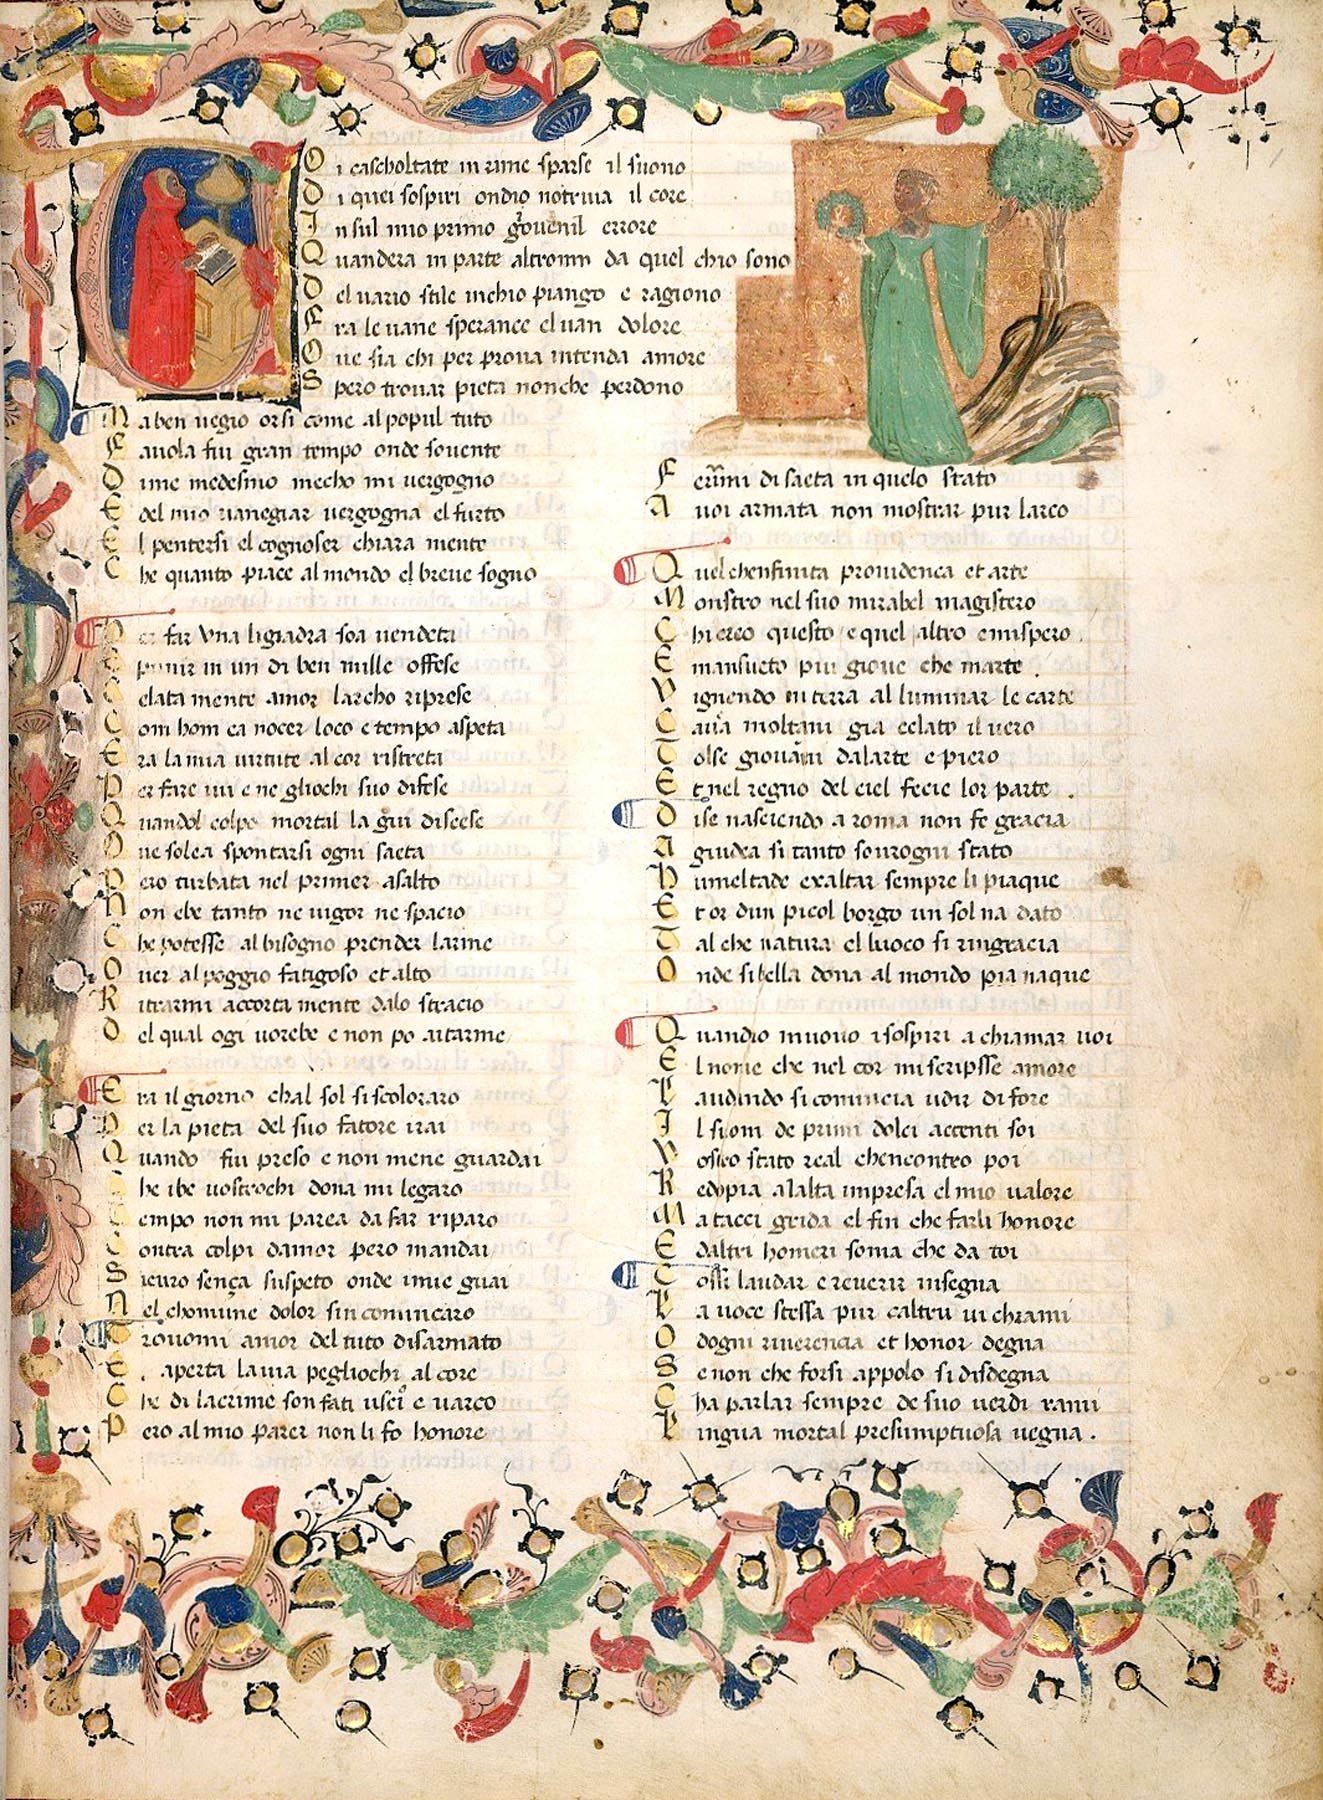 O i cascholtate in rime sparse il suono
D i quei sospiri ondio notriua il core
I n sul mio primo giouenil errore
Q uandera in parte altromm da quel chio sono
D el uario stile inchio piango e ragiono
F ra le uane sperance el uan dolore
O ue sia chi per proua intenda amore
S pero trouar pieta nonche perdono
M a ben uegio or si come al popul tuto
F auola fui gran tempo onde souente
D ime medesmo mecho mi uergogno
E del mio uanegiar uergogna el furto
E l pentersi el cognoser chiara mente
C he quanto piace al mondo el breue sogno
P er far vna ligiadra soa uendeta
E punir in un di ben mille offese
C elata mente amor larcho riprese
C om hom ca nocer loco e tempo aspeta
E ra la mia uirtute al cor ristreta
P er fare iui e ne gliochi suo difese
Q uandol colpo mortal la giu discese
O ue solea spontarsi ogni saeta
P ero turbata nel primer asalto
N on ebe tanto ne uigor ne spacio
C he potesse al bisogno prender larme
O uer al poggio fatigoso et alto
R itrarmi accorta mente dalo stracio
D el qual ogi uorebe e non po aitarme
E ra il giorno chal sol si scoloraro
P er la pieta del suo fatore irai
Q uando fui preso e non mene guardai
he ibe uostrochi dona mi legaro
T empo non mi parea da far riparo
C ontra colpi damor pero mandai
S icuro sença suspeto onde imie guai
N el chomune dolor sin comincaro
T rouomi amor del tuto disarmato
E aperta la uia pegliochi al core
C he di lacrime son fati usci e uarco
P ero al mio parer non li fo honore
F erirmi di saeta in quelo stato
A uoi armata non mostrar pur larco
Q uel chenfinita prouidenca et arte
M onstro nel suo mirabel magistero
C hi creo questo e quel altro emispero
E mansueto piu gioue che marte
V ignendo in terra al luminar le carte
C auia moltani gia celato il uero
T olse giouani dalarte e piero
E t nel regno del ciel fecie lor parte
D ise nasciendo a roma non fe gracia
A giudea si tanto sourogni stato
H umeltade exaltar sempre li piaque
E t or dun picol borgo un sol na dato
T al che natura el luoco si ringracia
O nde si bella dona al mondo pia naque
Q uandio muouo i sospiri a chiamar uoi
E l nome che nel cor mi scripsse amore
L audando si comincia udir di fore
I l suon de primi dolci accenti soi
V ostro stato real chencontro poi
R edopia alalta impresa el mio ualore
M a tacci grida el fin che farli honore
E daltri homeri soma che da toi
C ossi laudar e reuerir insegna
L a uoce stessa pur caltru ui chrami
O dogni riuerencia et honor degna
S e non che forsi appolo si disdegna
C ha parlar sempre de suo uerdi rami
L ingua mortal presumptuosa uegna .